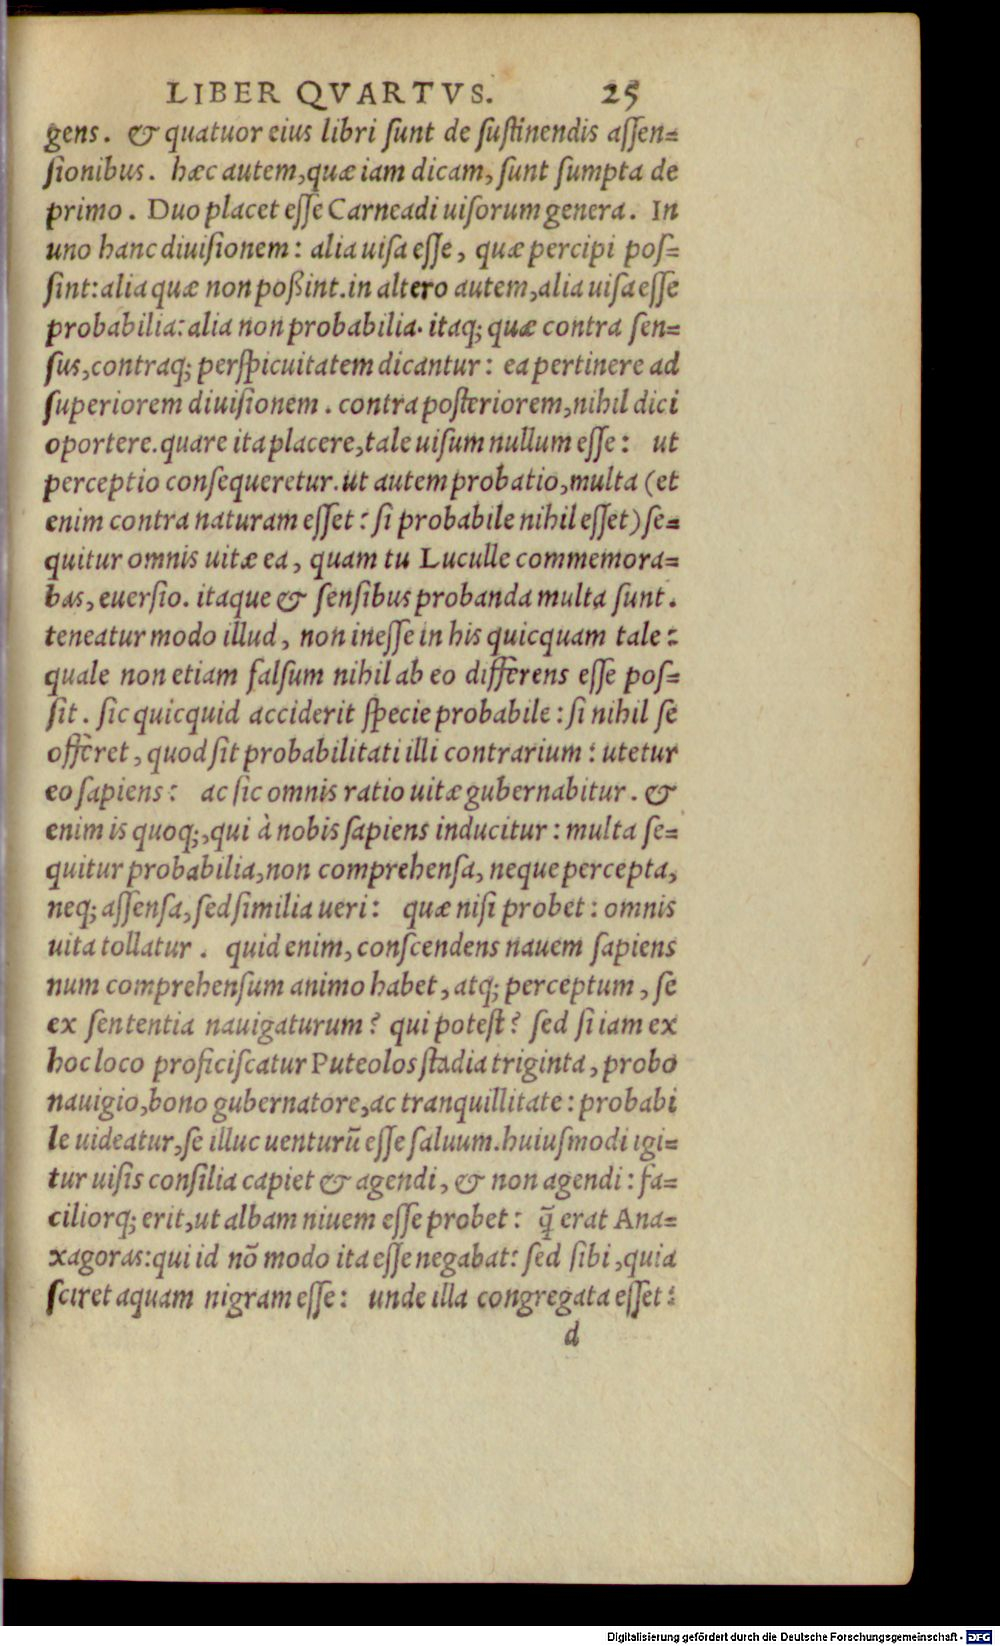 LIBER QVARTVS. 25
gens. & quatuor eius libri ſunt de ſuſtinendis aſſen=
ſionibus. hæc autem, quæ iam dicam, ſunt ſumpta de
primo. Duo placet eſſe Carneadi uiſorum genera. In
uno hanc diuiſionem: alia uiſa eſſe, quæ percipi poſ=
ſint: alia quæ non poßint. in altero autem, alia uiſa eſſe
probabilia: alia non probabilia. itaq; quæ contra ſen=
ſus, contraq; perſpicuitatem dicantur: ea pertinere ad
ſuperiorem diuiſionem. contra poſteriorem, nihil dici
oportere. quare ita placere, tale uiſum nullum eſſe: ut
perceptio conſequeretur. ut autem probatio, multa (et
enim contra naturam eſſet: ſi probabile nihil eſſet) ſe=
quitur omnis uitæ ea, quam tu Luculle commemora=
bas, euerſio. itaque & ſenſibus probanda multa ſunt.
teneatur modo illud, non ineſſe in his quicquam tale:
quale non etiam falſum nihil ab eo differens eſſe poſ=
ſit. ſic quicquid acciderit ſpecie probabile: ſi nihil ſe
offeret, quod ſit probabilitati illi contrarium: utetur
eo ſapiens: ac ſic omnis ratio uitæ gubernabitur. &
enim is quoq;, qui à nobis ſapiens inducitur: multa ſe=
quitur probabilia, non comprehenſa, neque percepta,
neq; aſſenſa, ſed ſimilia ueri: quæ niſi probet: omnis
uita tollatur. quid enim, conſcendens nauem ſapiens
num comprehenſum animo habet, atq; perceptum, ſe
ex ſententia nauigaturum? qui poteſt? ſed ſi iam ex
hoc loco proficiſcatur Puteolos ſtadia triginta, probo
nauigio, bono gubernatore, ac tranquillitate: probabi
le uideatur, ſe illuc uenturū eſſe ſaluum. huiuſmodi igi=
tur uiſis conſilia capiet & agendi, & non agendi: fa=
ciliorq; erit, ut albam niuem eſſe probet: q̃ erat Ana=
xagoras: qui id nō modo ita eſſe negabat: ſed ſibi, quia
ſciret aquam nigram eſſe: unde illa congregata eſſet:
d
Digitalisierung gefördert durch die Deutsche Forschungsgemeinschaft - DFG